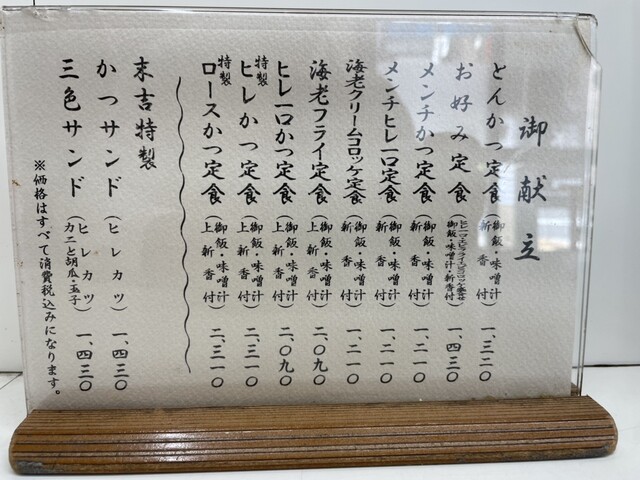 御献立
とんかつ定食(御飯・味噌汁新香付)一、三二〇
お好み定食 御飯・味噌汁・新香付 一、四三〇
メンチかつ定食(御飯・味噌汁新香付)一、二一〇
メンチヒレ一口定食(御飯・味噌汁新香付)一、二一〇
海老クリームコロッケ定食(御飯・味噌汁新香付)一、二一〇
海老フライ定食(御飯・味噌汁上新香付)二、〇九〇
ヒレ一口かつ定食(御飯・味噌汁上新香付)二、〇九〇
特製ヒレかつ定食(御飯・味噌汁上新香付)二、三一〇
特製ロースかつ定食(御飯・味噌汁上新香付)二、三一〇
末吉特製
かつサンド(ヒレカツ)一、四三〇
三色サンド(ヒレカツカニと胡瓜・玉子)一、四三〇
※価格はすべて消費税込みになります。